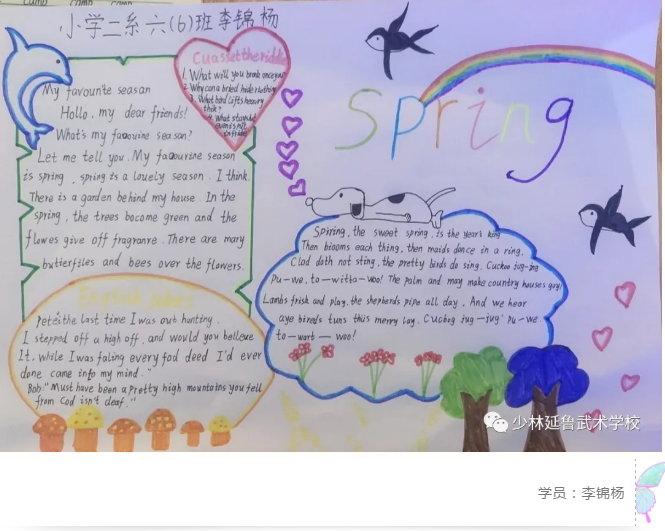 小学二系六(6)班李锦杨
My favourite seasan
Hollo, my dear friends!
What's my favourine season?
Let me tell you. My favourine season
is spring, spring is a lovely season. I think.
There is a garden behind my house. In the
spring, the trees bocome green and the
flowes give off fragranre. There are mary
butterflies and bees over the flowers.
Cuassettheriddle
1. What will you break once you
Spring
Spiring, the sweet spring, is the year's king
Then blooms each thing, then maids dance in a ring,
Clod doth not sting, the pretty birds do sing, Cuckoo jug-jug
Pu-we, to-witta-woo! The palm and may make country houses gay
Lambs frisk and play, the shepherds pipe all day, And we hear
aye bireds tues this merry lay. Cuckoo jug-jug' pu-we
to-wart-woo!
English jokes
Pete:the last time I was out hunting,
I stepped off a high off, and would you belleve
It, while I was faling every fod deed I'd ever
done came info my mind."
Bob:"Must have been a pretty high mountains you fell
from Cod isn't deaf."
少林延鲁武术学校
学员：李锦杨